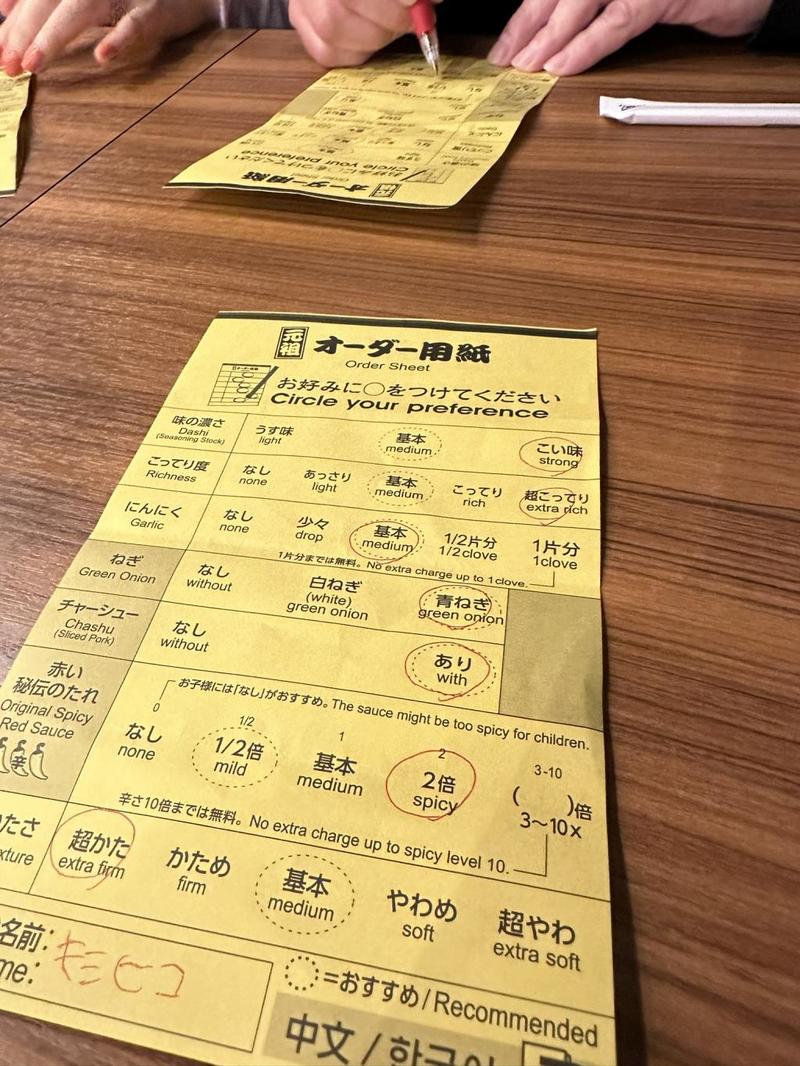 元祖 オーダー用紙
Order Sheet
お好みに○をつけてください
Circle your preference
味の濃さ うす味 基本 こい味
Dashi light medium strong
(Seasoning Stock)
こってり度 なし あっさり 基本 こってり 超こってり
Richness none light medium rich extra rich
にんにく なし 少々 基本 1/2片分 1片分
Garlic none drop medium 1/2clove 1clove
1片分までは無料。No extra charge up to 1clove.
ねぎ なし 白ねぎ 青ねぎ
Green Onion without (white) green onion
green onion
チャーシュー なし あり
Chashu without with
(Sliced Pork)
お子様には「なし」がおすすめ。The sauce might be too spicy for children.
赤い
秘伝のたれ
Original Spicy
Red Sauce
辛
0 1/2 1 2 3-10
なし 1/2倍 基本 2倍 ( )倍
none mild medium spicy 3〜10x
辛さ10倍までは無料。No extra charge up to spicy level 10.
たさ 超かた かため 基本 やわめ 超やわ
xture extra firm firm medium soft extra soft
名前:
me:
=おすすめ/Recommended
中文/한국어
オーダー用紙
Order Sheet
お好みに○をつけてください
Circle your preference